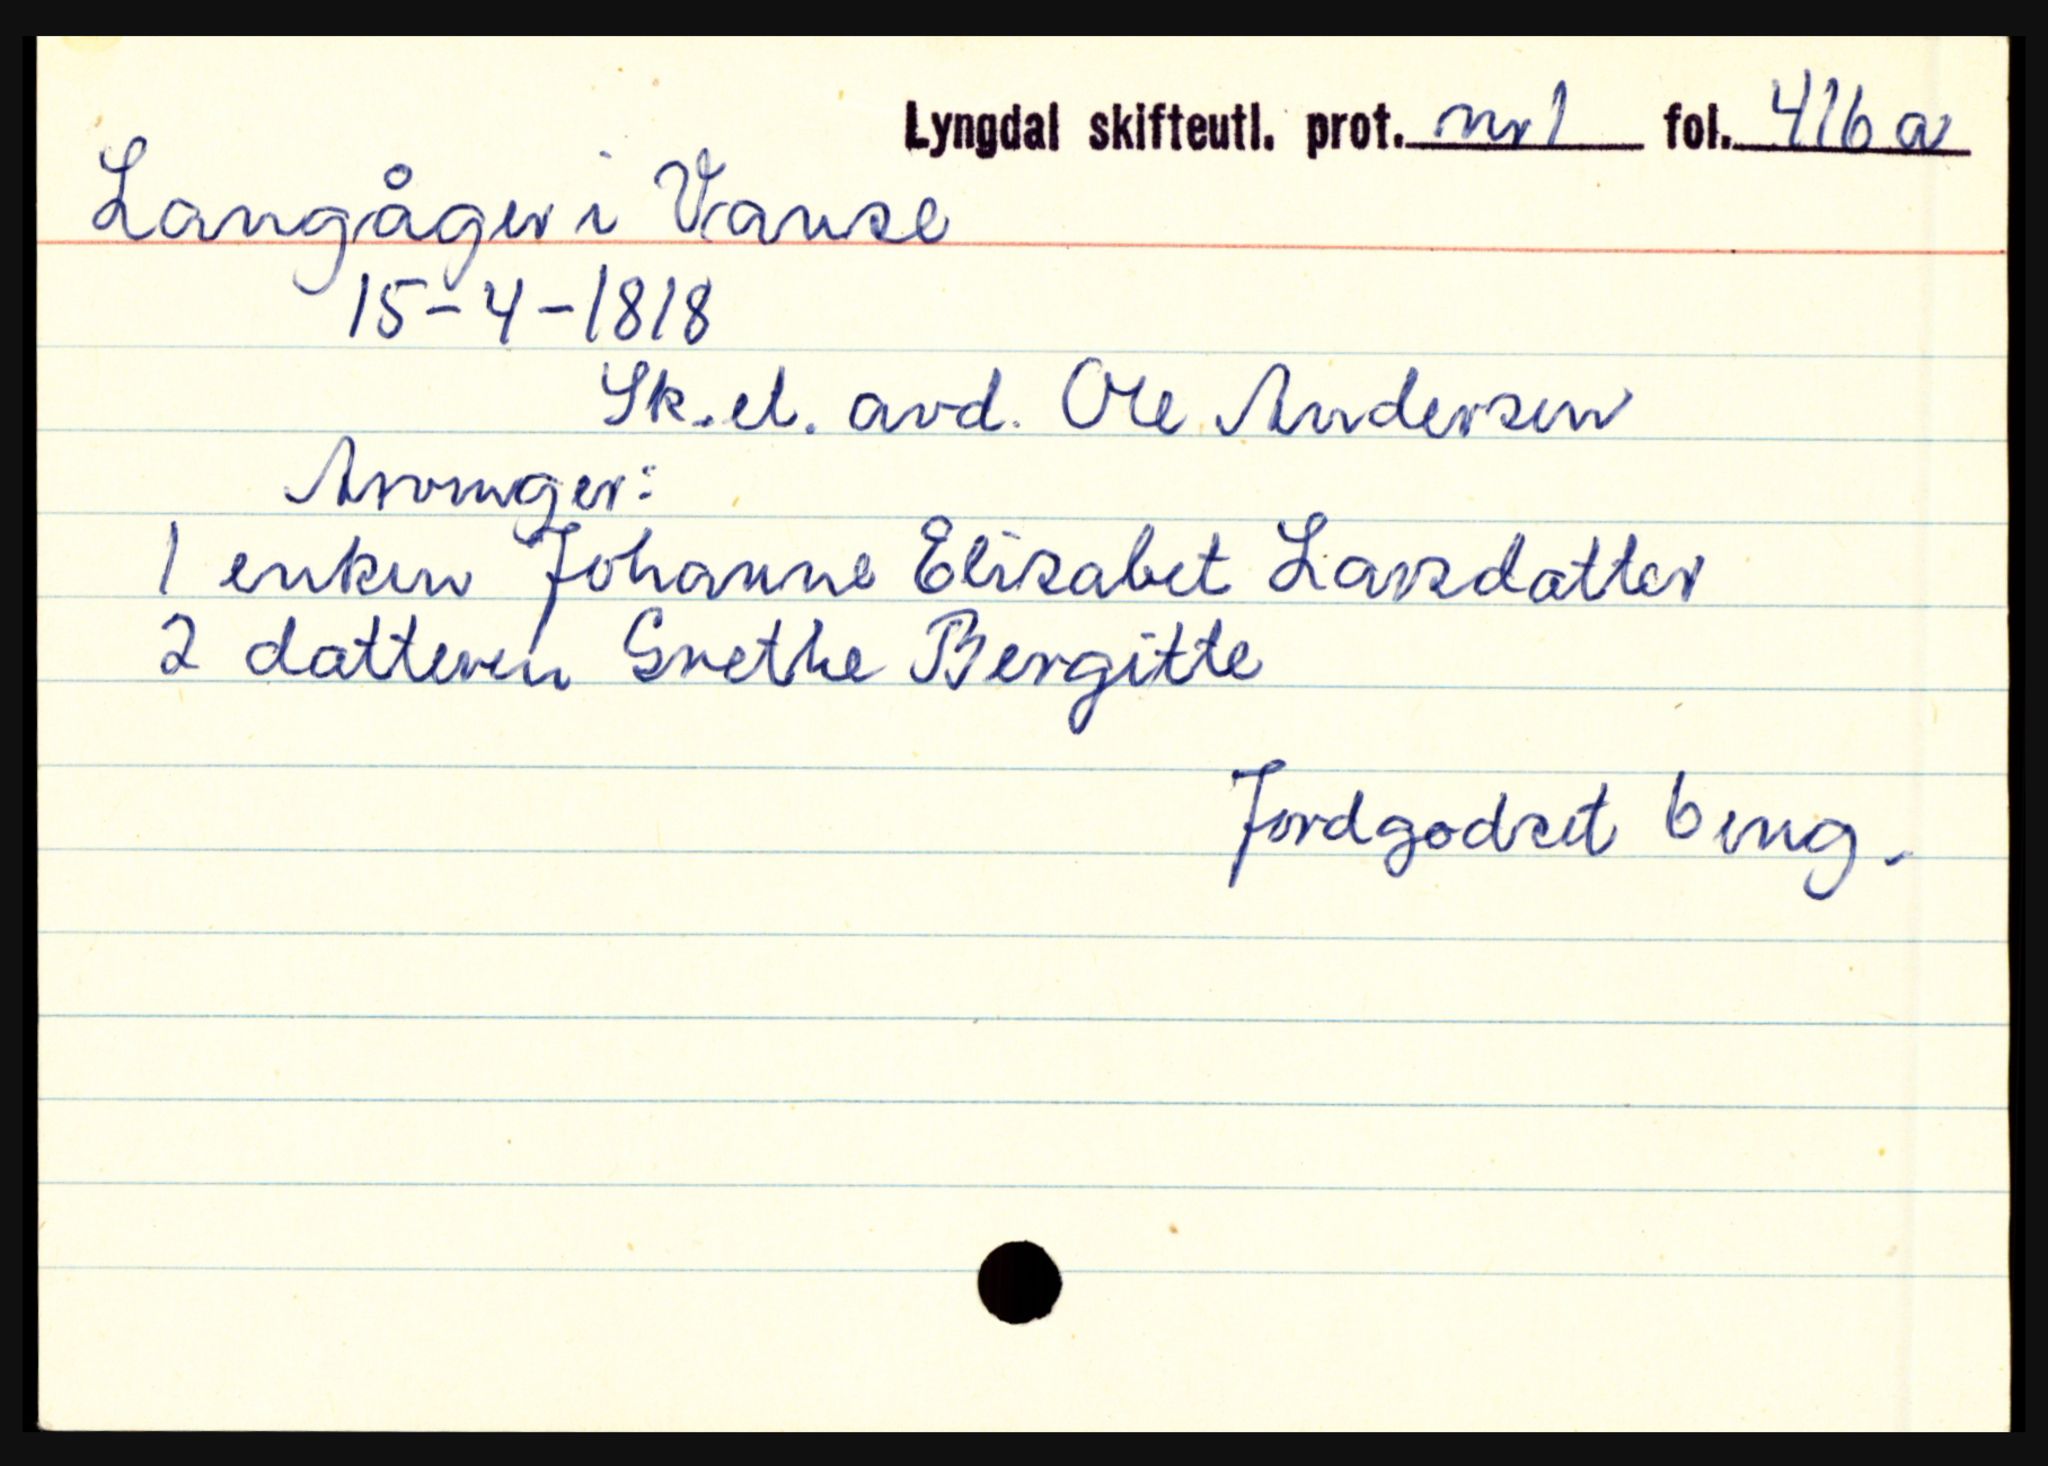 Lyngdal skifteutl. prot. nr 1 fol. 416 a
Langåger i Vanse
15-4-1818
Sk. el. avd. Ole Andersen
Arvinger:
1 enken Johanne Elisabet Larsdatter
2 datteren Grethe Bergitte
Jordgodset 6 eng.